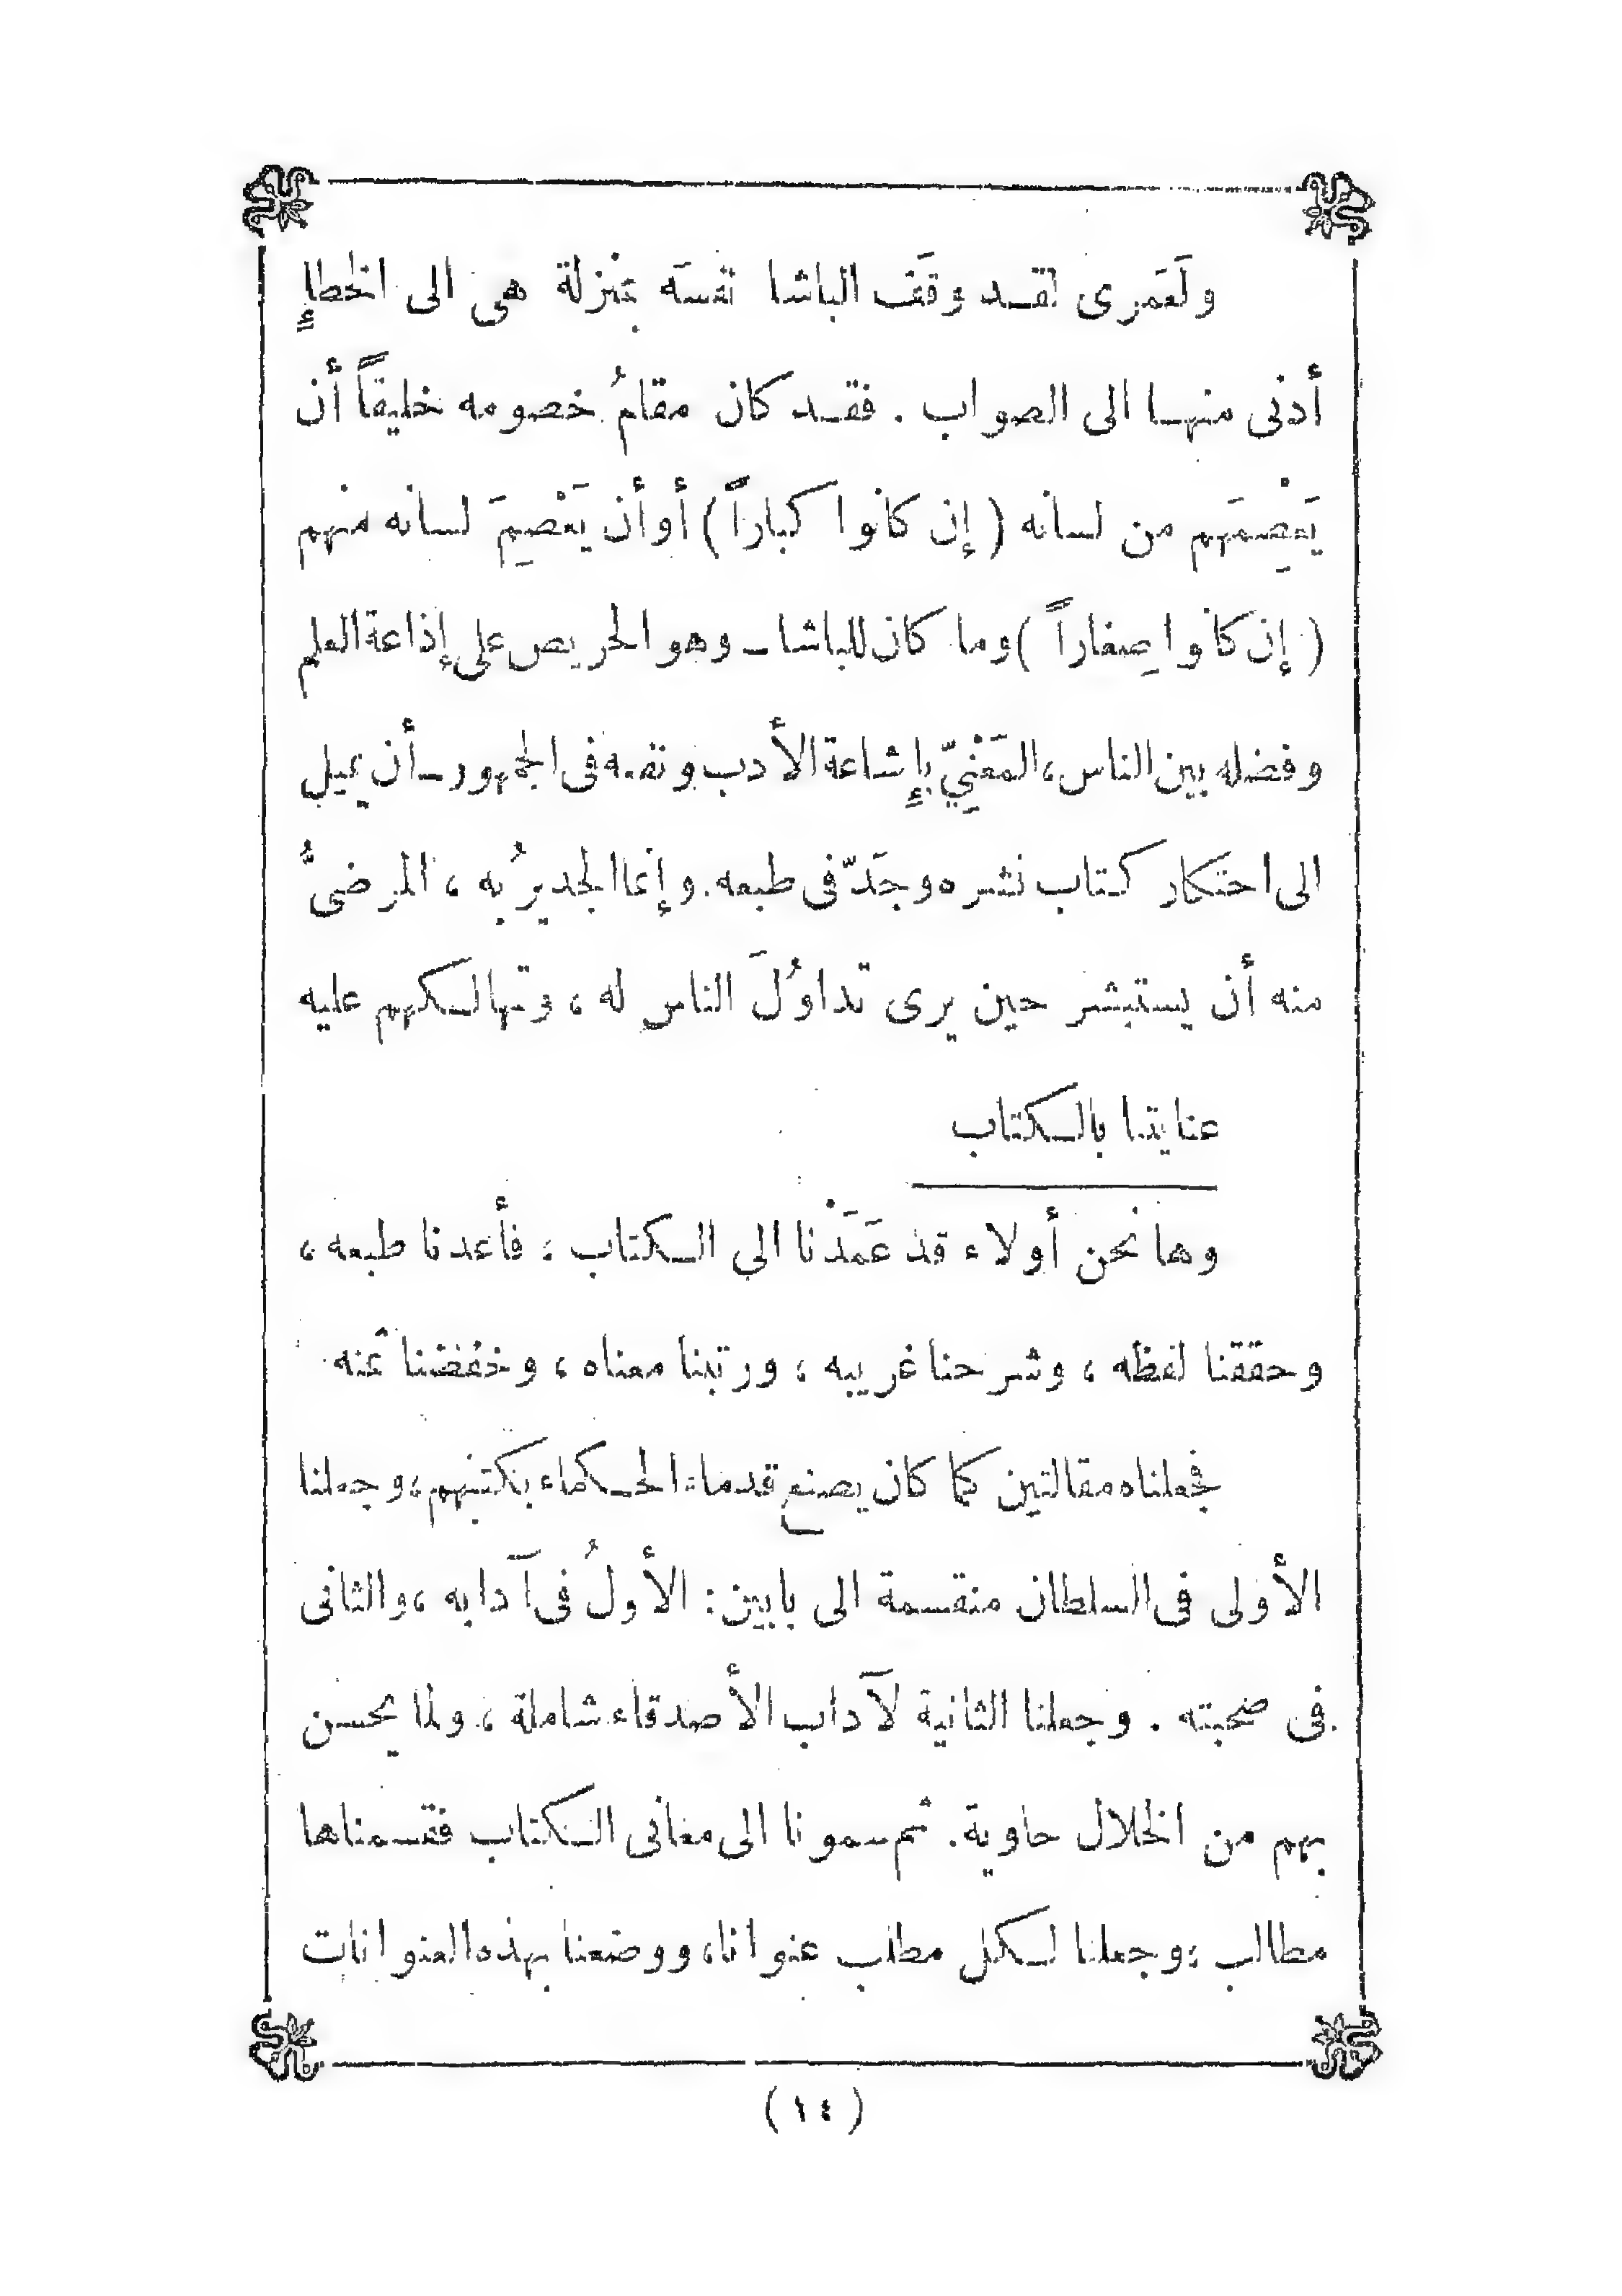 ولَعَمرى لقد وقَف الباشا نفسَه بمنْزلة هى الى الخطإِ
أدنى منها الى الصواب . فقد كان مقامُ خصومه خليقاً أن
يَعْصِمَهم من لسانه ( إن كانوا كباراً ) أو أن يَعْصِمَ لسانه منهم
( إن كانوا صِغاراً ) وما كان للباشا ـ وهو الحريص على إذاعة العلم
وفضله بين الناس ، المَعْنِيّ بإِشاعة الأدب ونفعه فى الجمهور ـ أن يميل
الى احتكار كتاب نشره وجَدّ فى طبعه . وإنما الجديرُ به ، المرضىُّ
منه أن يستبشر حين يرى تداوُلَ الناس له ، وتهالكهم عليه
عنايتنا بالكتاب
وها نحن أولاء قد عَمَدْنا الى الكتاب ، فأعدنا طبعه ،
وحققنا لفظه ، وشرحنا غريبه ، ورتبنا معناه ، وخفضنا ثمنه
فجعلناه مقالتين كما كان يصنع قدماء الحكماء بكتبهم ، وجعلنا
الأولى فى السلطان منقسمة الى بابين : الأولُ فى آدابه ، والثانى
فى صحبته . وجعلنا الثانية لآداب الأصدقاء شاملة ، ولما يحسن
بهم من الخلال حاوية . ثم سمونا الى معانى الكتاب فقسمناها
مطالب ، وجعلنا لكل مطلب عنوانا ، ووضعنا بهذه العنوانات
( ١٤ )